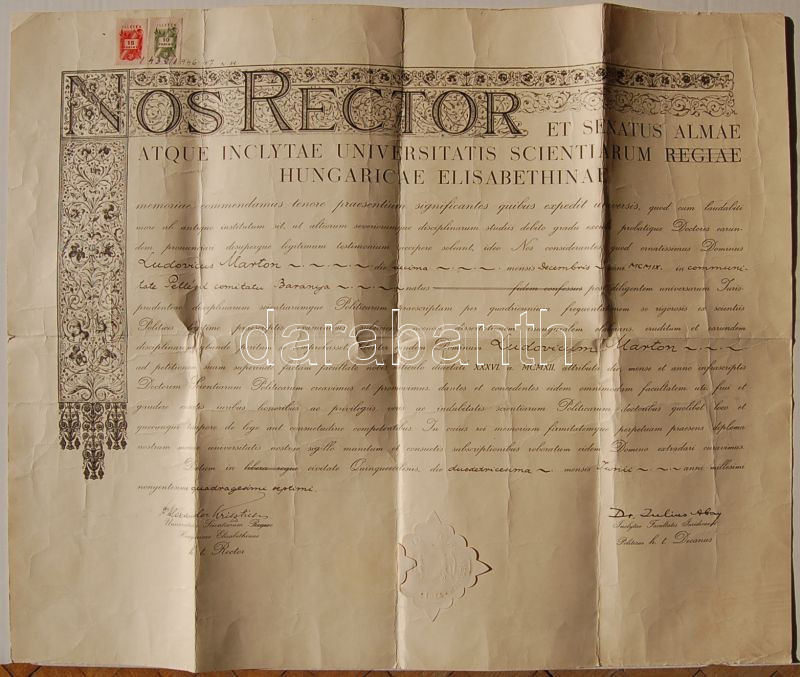 ILLETÉK ILLETÉK
15 10
NOS RECTOR ET SENATUS ALMAE
ATQUE INCLYTAE UNIVERSITATIS SCIENTIARUM REGIAE
HUNGARICAE ELISABETHINAE
memoriae commendamus tenore praesentium significantes quibus expedit universis, quod cum laudabili
more ab antiquo institutum sit, ut altiorum severiorumque disciplinarum studiis debito gradu probatique Doctores earun-
dem pronunciari desuperque legitimum testimonium accipere soleant, ideo Nos considerantes quod ornatissimus Dominus
Ludovicus Marton die decima mensis Decembris MCMIX. in communi-
tate Pellérd comitatu Baranya natus fidem confessus post diligentem universarum Juris-
prudentiae disciplinarum scientiarumque Politicarum praescriptum per quadriennium frequentationem se rigorosis ex scientiis
Politicis eruditum et earundem
disciplinarum eundem Dominum Ludovicum Marton
ad petitionem suam superinde factam facultate nobis articulo diaetali XXXVI. a. MCMXII. attributa die mense et anno infrascriptis
Doctorem Scientiarum Politicarum creavimus et pronunciavimus, dantes et concedentes eidem omnimodam facultatem utendi, frui et
gaudere iuribus honoribus ac privilegiis, ac indultis scientiarum Politicarum doctoribus quolibet loco et
quocunque tempore de lege aut consuetudine competentibus. In cuius rei memoriam firmitatemque perpetuam praesens diploma
nostrum universitatis nostrae sigillo munitum et consuetis subscriptionibus roboratum eidem Domino extradari curavimus.
Datum in libera regia civitate Quinqueecclesiis, die duodetricesima mensis Junii anni millesimi
nongentesimi quadragesimi septimi.
Dr. Julius Abay
Universitatis Scientiarum Regiae Inclytae Facultatis Juridico et
Hungaricae Elisabethinae Politicae h. t. Decanus
h. t. Rector
darabanth